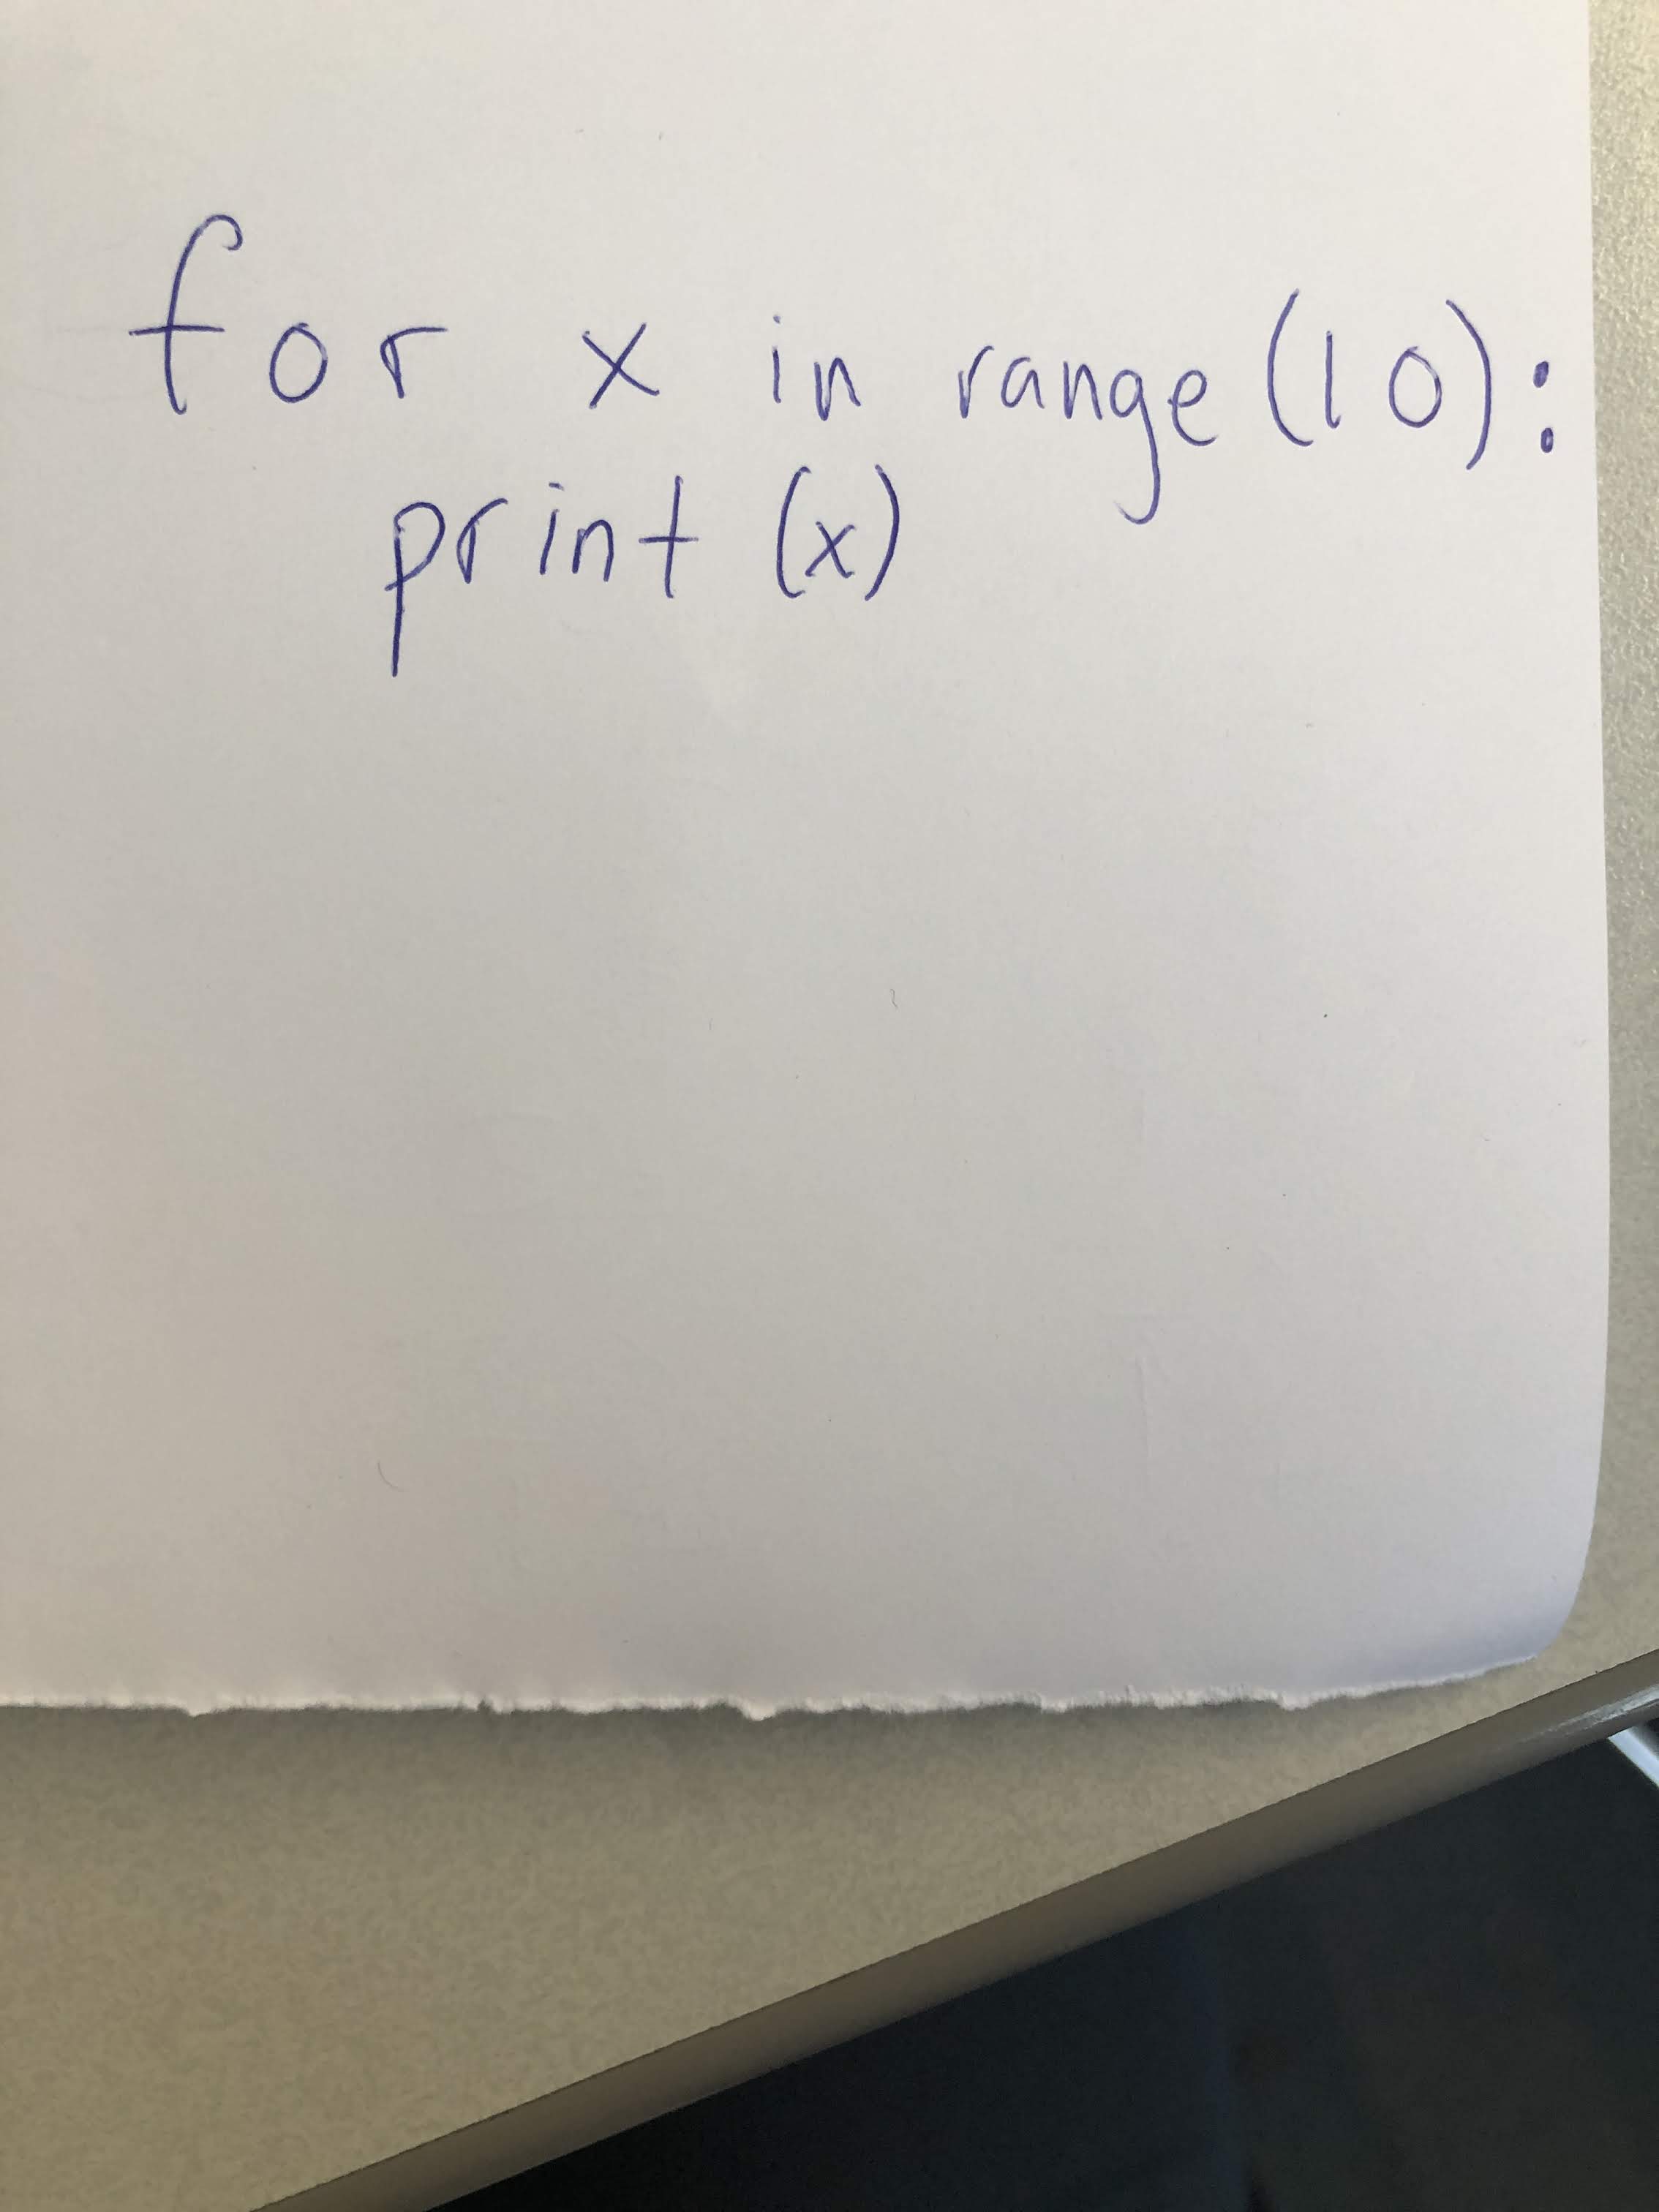 for x in range(10):
    print (x)